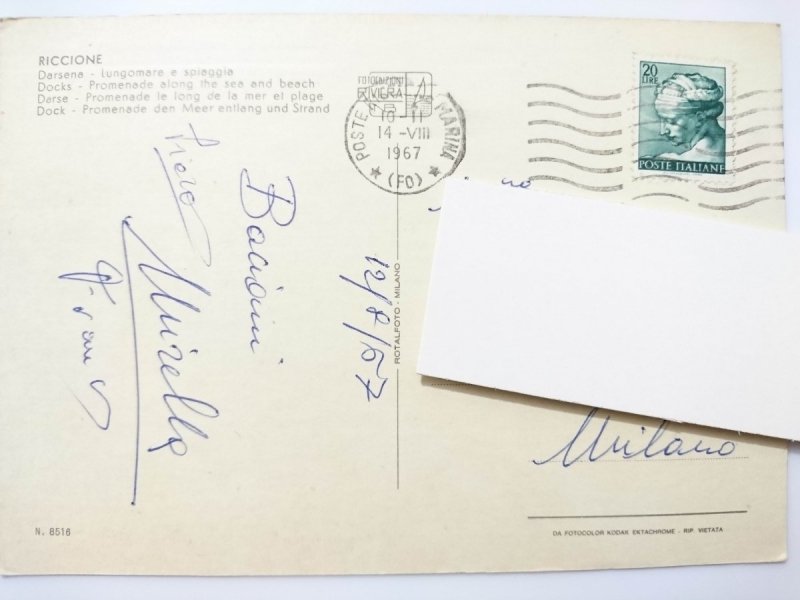 RICCIONE
Darsena - Lungomare e spiaggia
Docks - Promenade along the sea and beach
Darse - Promenade le long de la mer et plage
Dock - Promenade den Meer entlang und Strand
FOTOEDIZIONI
RIVIERA
POSTE MARINA
10-11
14-VIII
1967
(FO)
20
LIRE
POSTE ITALIANE
Bacioni
Mirella
12/8/67
ROTALFOTO - MILANO
Milano
N. 8516
DA FOTOCOLOR KODAK EKTACHROME - RIP. VIETATA